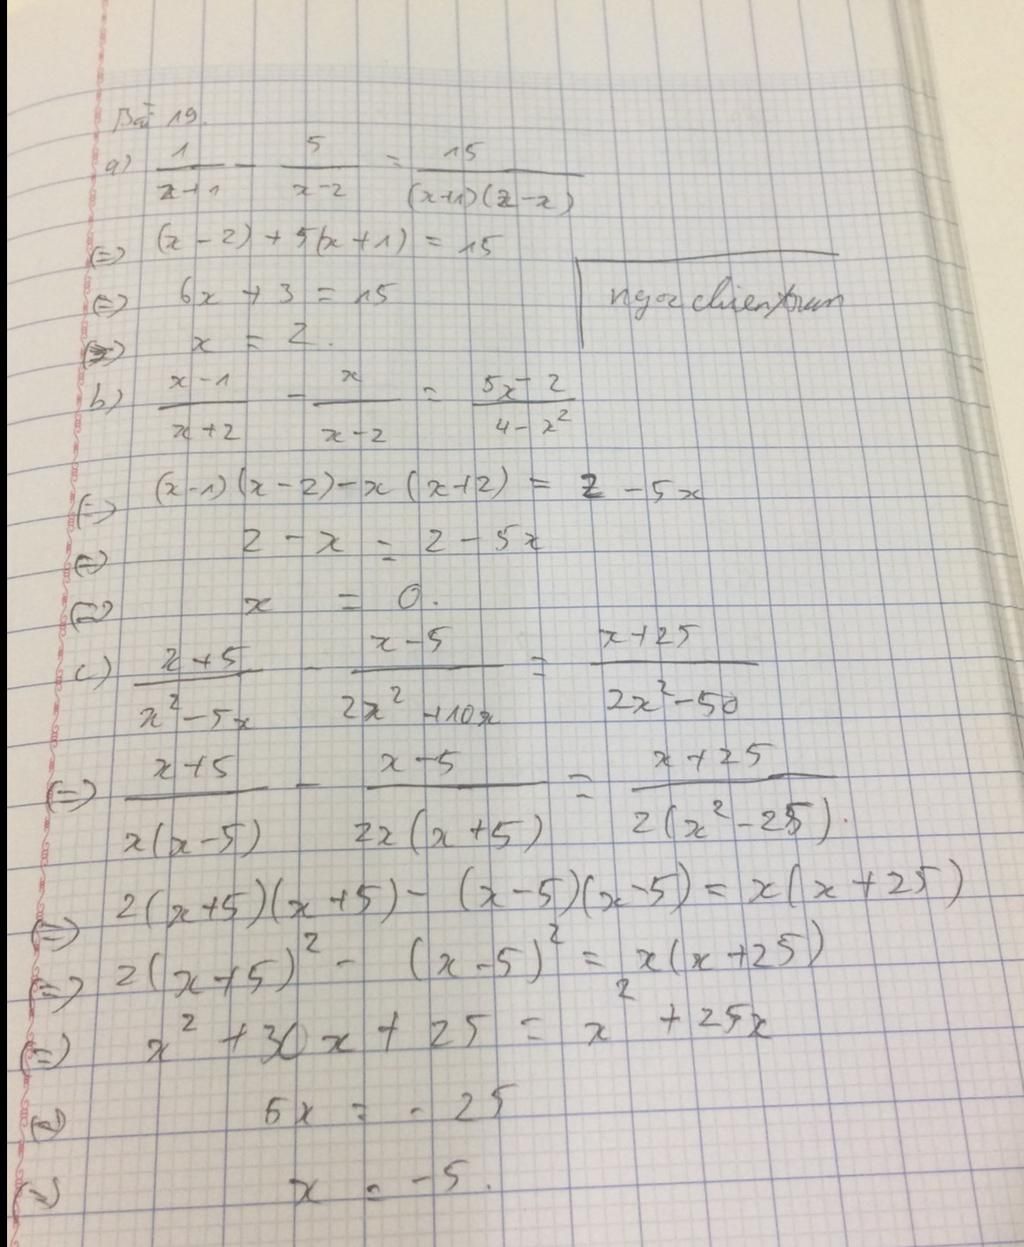 Bài 19.
a) 1/(x+1) - 5/(x-2) = 15/((x+1)(2-x))
(=) (x-2) + 5(x+1) = 15
(=) 6x + 3 = 15
(=) x = 2.
ngocchientran
b) (x-1)/(x+2) - x/(x-2) = (5x-2)/(4-x²)
(=) (x-1)(x-2) - x(x+2) = 2 - 5x
(=) 2 - x = 2 - 5x
(=) x = 0.
c.) (x+5)/(x²-5x) - (x-5)/(2x²+10x) = (x+25)/(2x²-50)
(=) (x+5)/(x(x-5)) - (x-5)/(2x(x+5)) = (x+25)/(2(x²-25)).
(=) 2(x+5)(x+5) - (x-5)(x-5) = x(x+25)
(=) 2(x+5)² - (x-5)² = x(x+25)
(=) x² + 30x + 25 = x² + 25x
(=) 5x = -25
(=) x = -5.